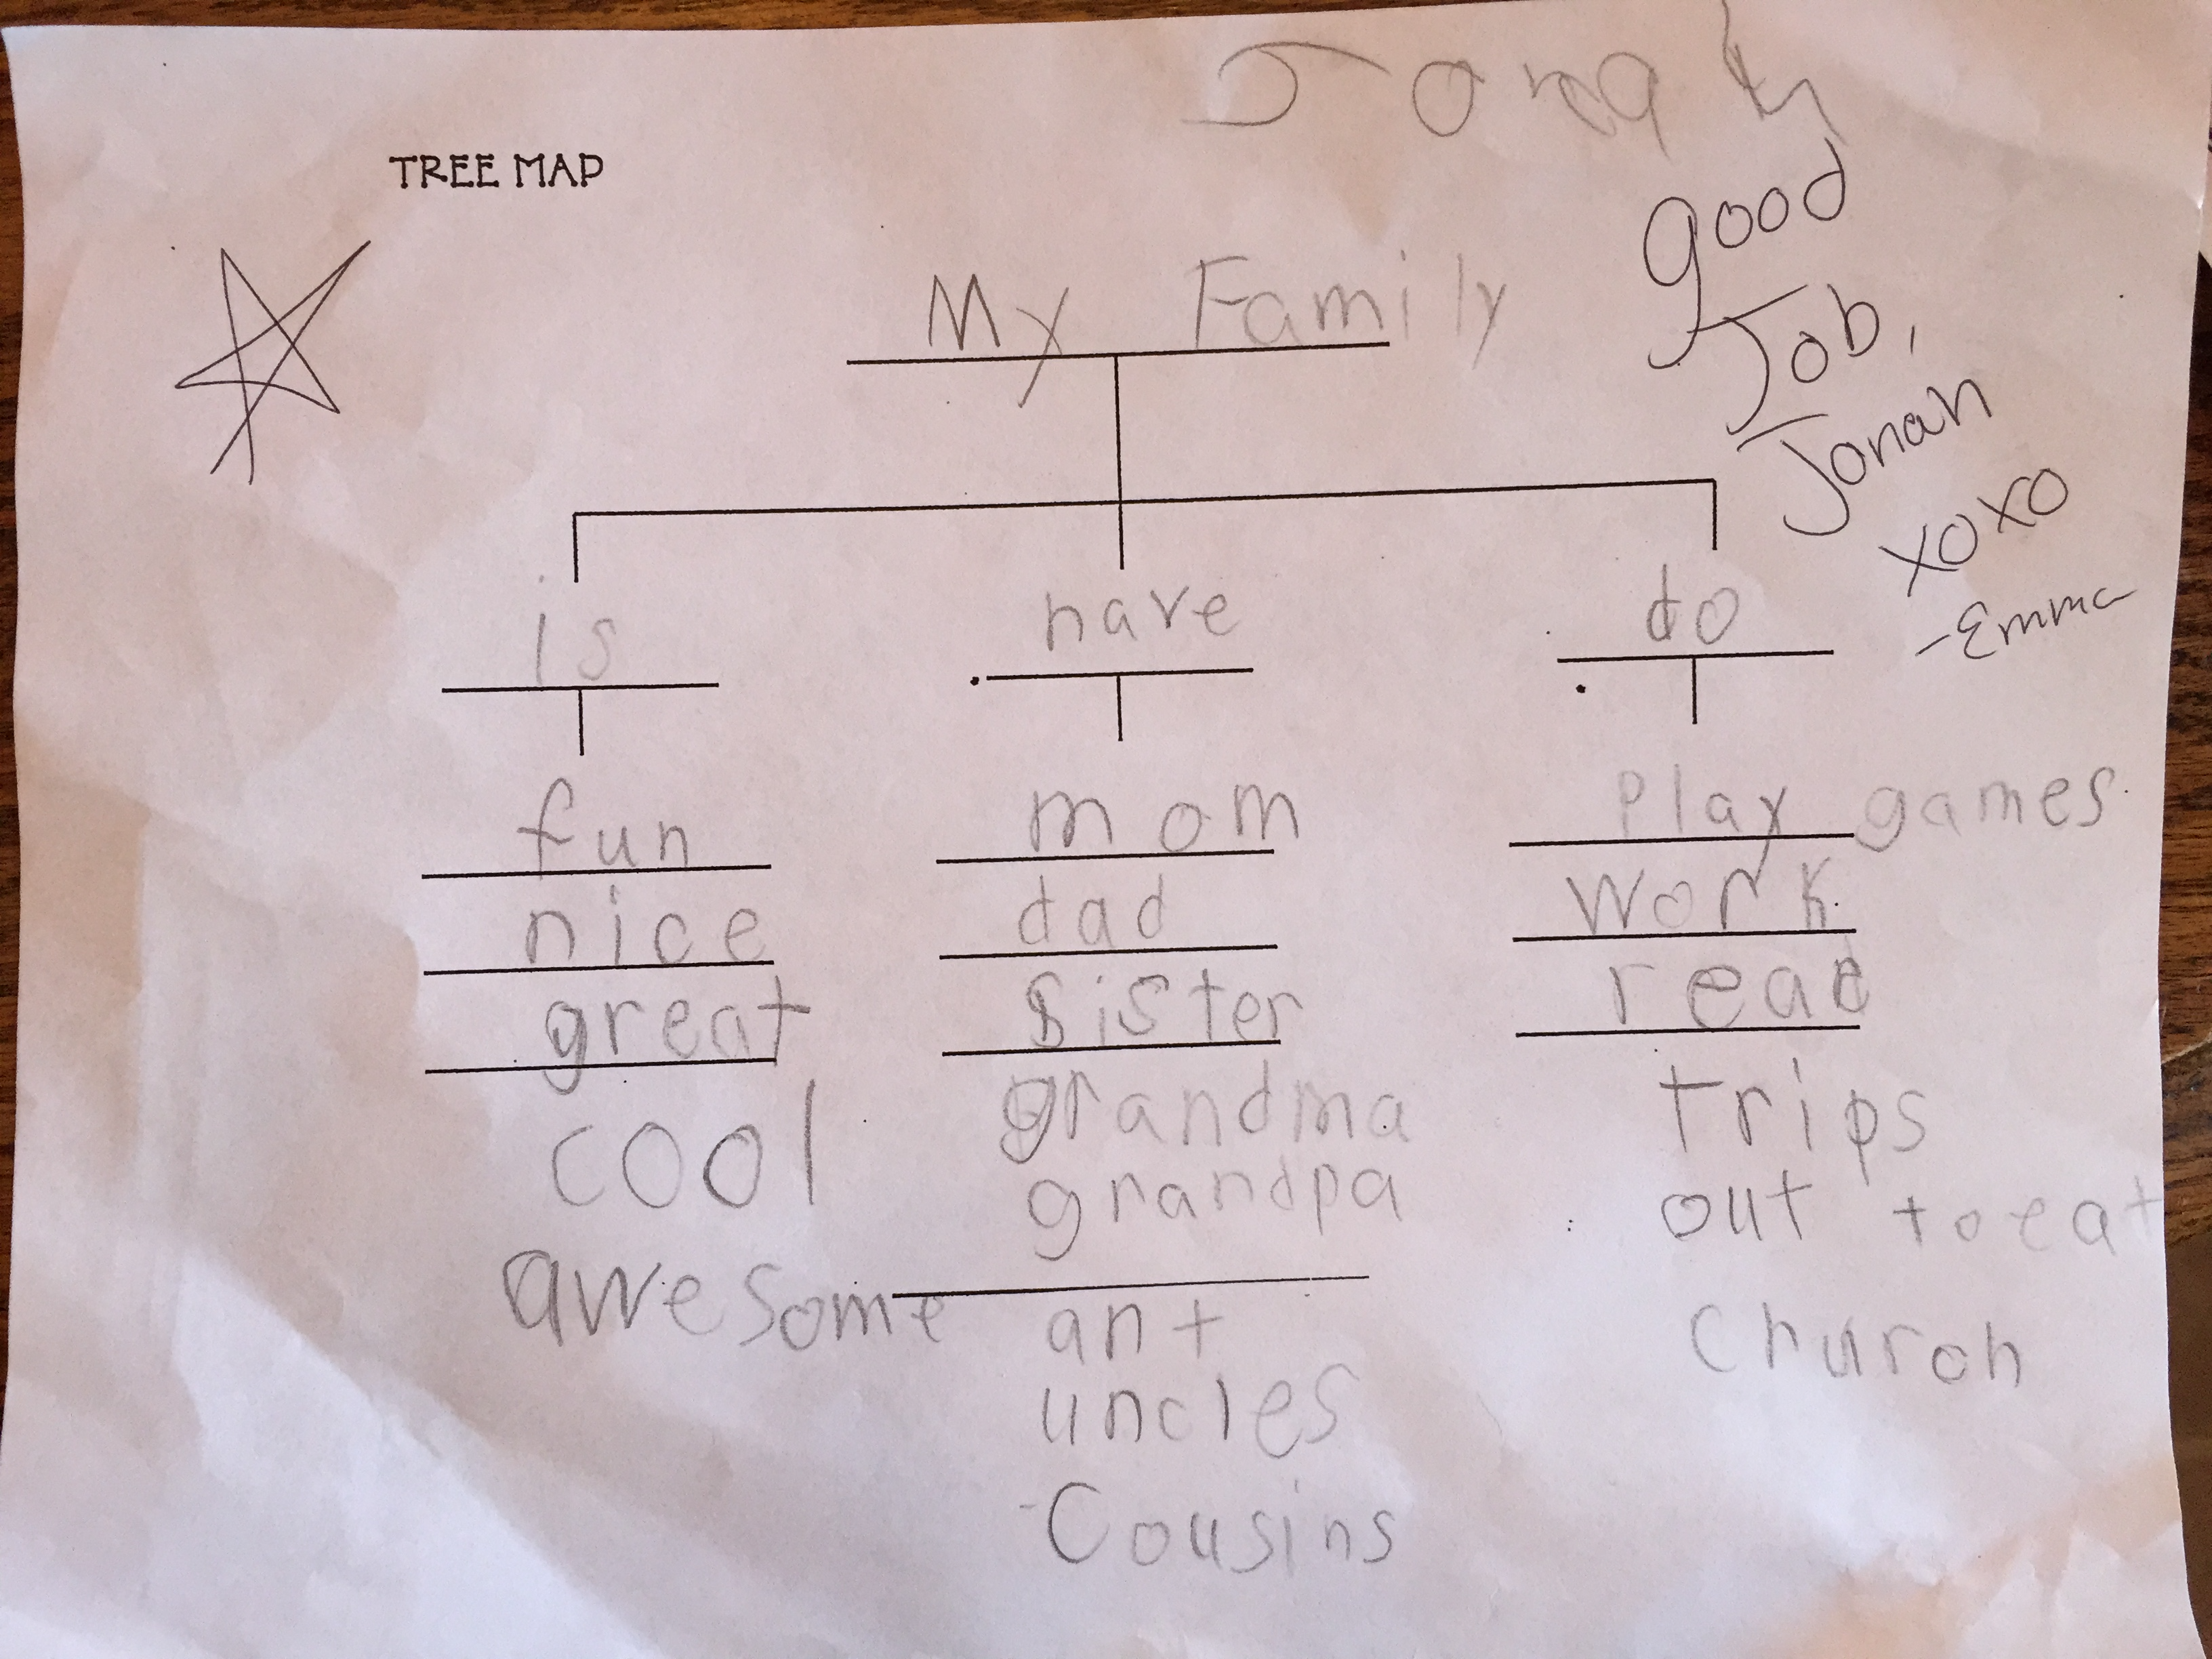 Jonah
TREE MAP
good
Job,
Jonah
xoxo
-Emma
My Family
is
have
do
fun
nice
great
cool
awesome
mom
dad
sister
grandma
grandpa
ant
uncles
Cousins
Play games
work
read
trips
out to eat
church